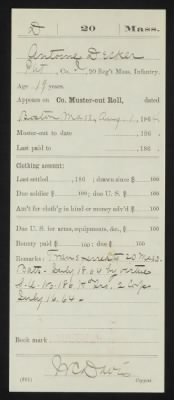 D 20 Mass.
Antoine Decker
Pvt., Co. I, 20 Reg't Mass. Infantry.
Age 19 years.
Appears on Co. Muster-out Roll, dated
Boston Mass, Aug. 1, 1864
Muster-out to date , 186 .
Last paid to , 186 .
Clothing account:
Last settled , 186 ; drawn since $ 100
Due soldier $ 100; due U. S. $ 100
Am't for cloth'g in kind or money adv'd $ 100
Due U. S. for arms, equipments, &c., $ 100
Bounty paid $ 100; due $ 100
Remarks: Transferred to 20 Mass.
Batt. July 18.64 by virtue
S.O. No. 186 Hd Qrs. 2 Corps
July 16.64.
Book mark:
Davis
(861) Copyist.